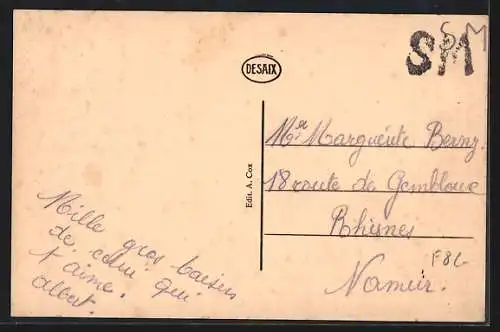 DESAIX
SM
SM
Marguerite
18 route de Gembloux
Rhisnes
Namur.
Edit. A. Cox
Mille gros baisers
de celui qui
t'aime.
albert.